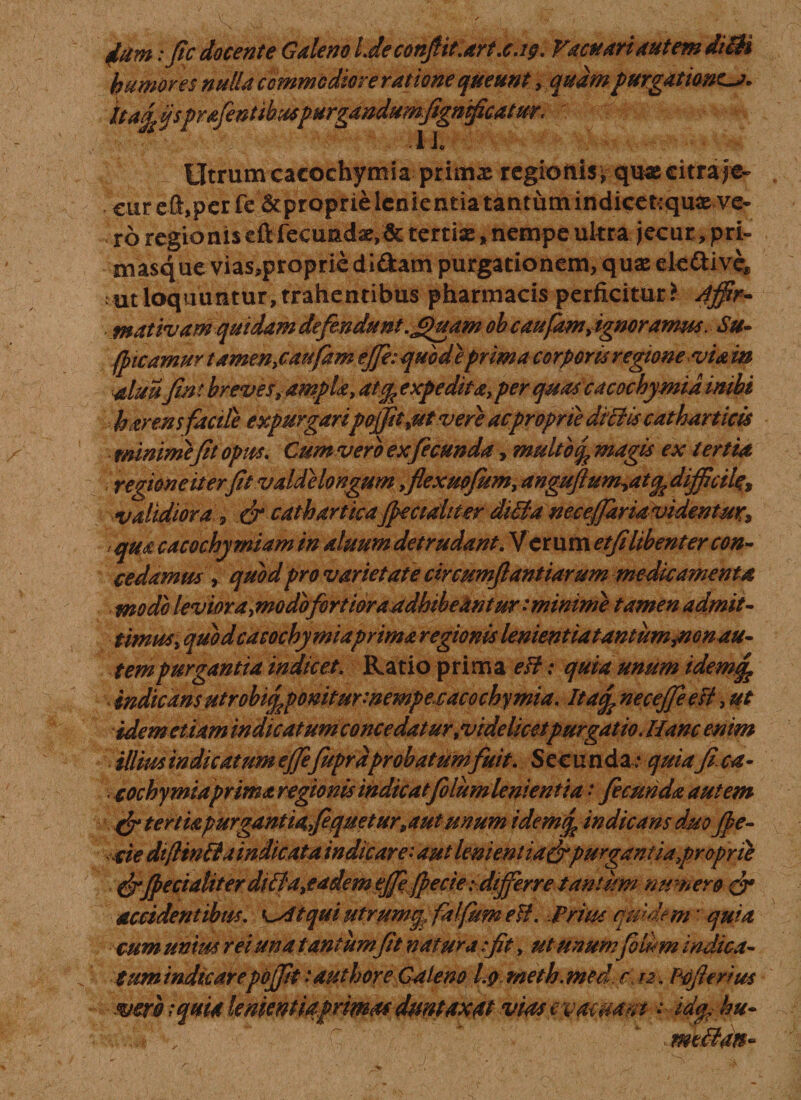 dum : ſic docente Galeno l.de conſtit.art.c.19. Vacuari autem dicti
humores nulla commodiore ratione queunt, quàm purgatione.
Itaq; ijs præſentibus purgandum ſignificatur.
II.
Utrum cacochymia primæ regionis, quæ citra je-
cur eſt, per ſe & propriè lenientia tantùm indicet: quæ ve-
rò regionis eſt ſecundæ, & tertiæ, nempe ultra jecur, pri-
masque vias, propriè dictam purgationem, quæ electivè,
ut loquuntur, trahentibus pharmacis perficitur? Affir-
mativam quidam defendunt. Quam ob cauſam, ignoramus. Su-
ſpicamur tamen, cauſam eſſe: quòd è prima corporis regione viæ in
aluũ ſint breves, amplæ, atq; expeditæ, per quas cacochymiâ inibi
hærens facilè expurgari poſſit, ut verè ac propriè dictis catharticis
minimè ſit opus. Cum verò ex ſecunda, multòq; magis ex tertia
regione iter ſit valdè longum, flexuoſum, anguſtum, atq; difficile,
validiora, & cathartica ſpecialiter dicta neceſſaria videntur,
quæ cacochymiam in aluum detrudant. Verum etſi libenter con-
cedamus, quòd pro varietate circumſtantiarum medicamenta
modò leviora, modò fortiora adhibeantur: minimè tamen admit-
timus, quòd cacochymia primæ regionis lenientia tantùm, non au-
tem purgantia indicet. Ratio prima eſt: quia unum idemq;
indicans utrobiq; ponitur: nempe cacochymia. Itaq; neceſſe eſt, ut
idem etiam indicatum concedatur, videlicet purgatio. Hanc enim
illius indicatum eſſe ſuprà probatum fuit. Secunda: quia ſi ca-
cochymia primæ regionis indicat ſolùm lenientia: ſecundæ autem
& tertiæ purgantia, ſequetur, aut unum idemq; indicans duo ſpe-
cie diſtincta indicata indicare: aut lenientia & purgantia, propriè
& ſpecialiter dicta, eadem eſſe ſpecie: differre tantùm numero &
accidentibus. Atqui utrumq; falſum eſt. Prius quidem: quia
cum unius rei una tantùm ſit natura: ſit, ut unum ſolùm indica-
tum indicare poſſit: authore Galeno l.9. meth. med. c. 12. Poſterius
verò: quia lenientia primas duntaxat vias evacuant: idq; hu-
mectan-